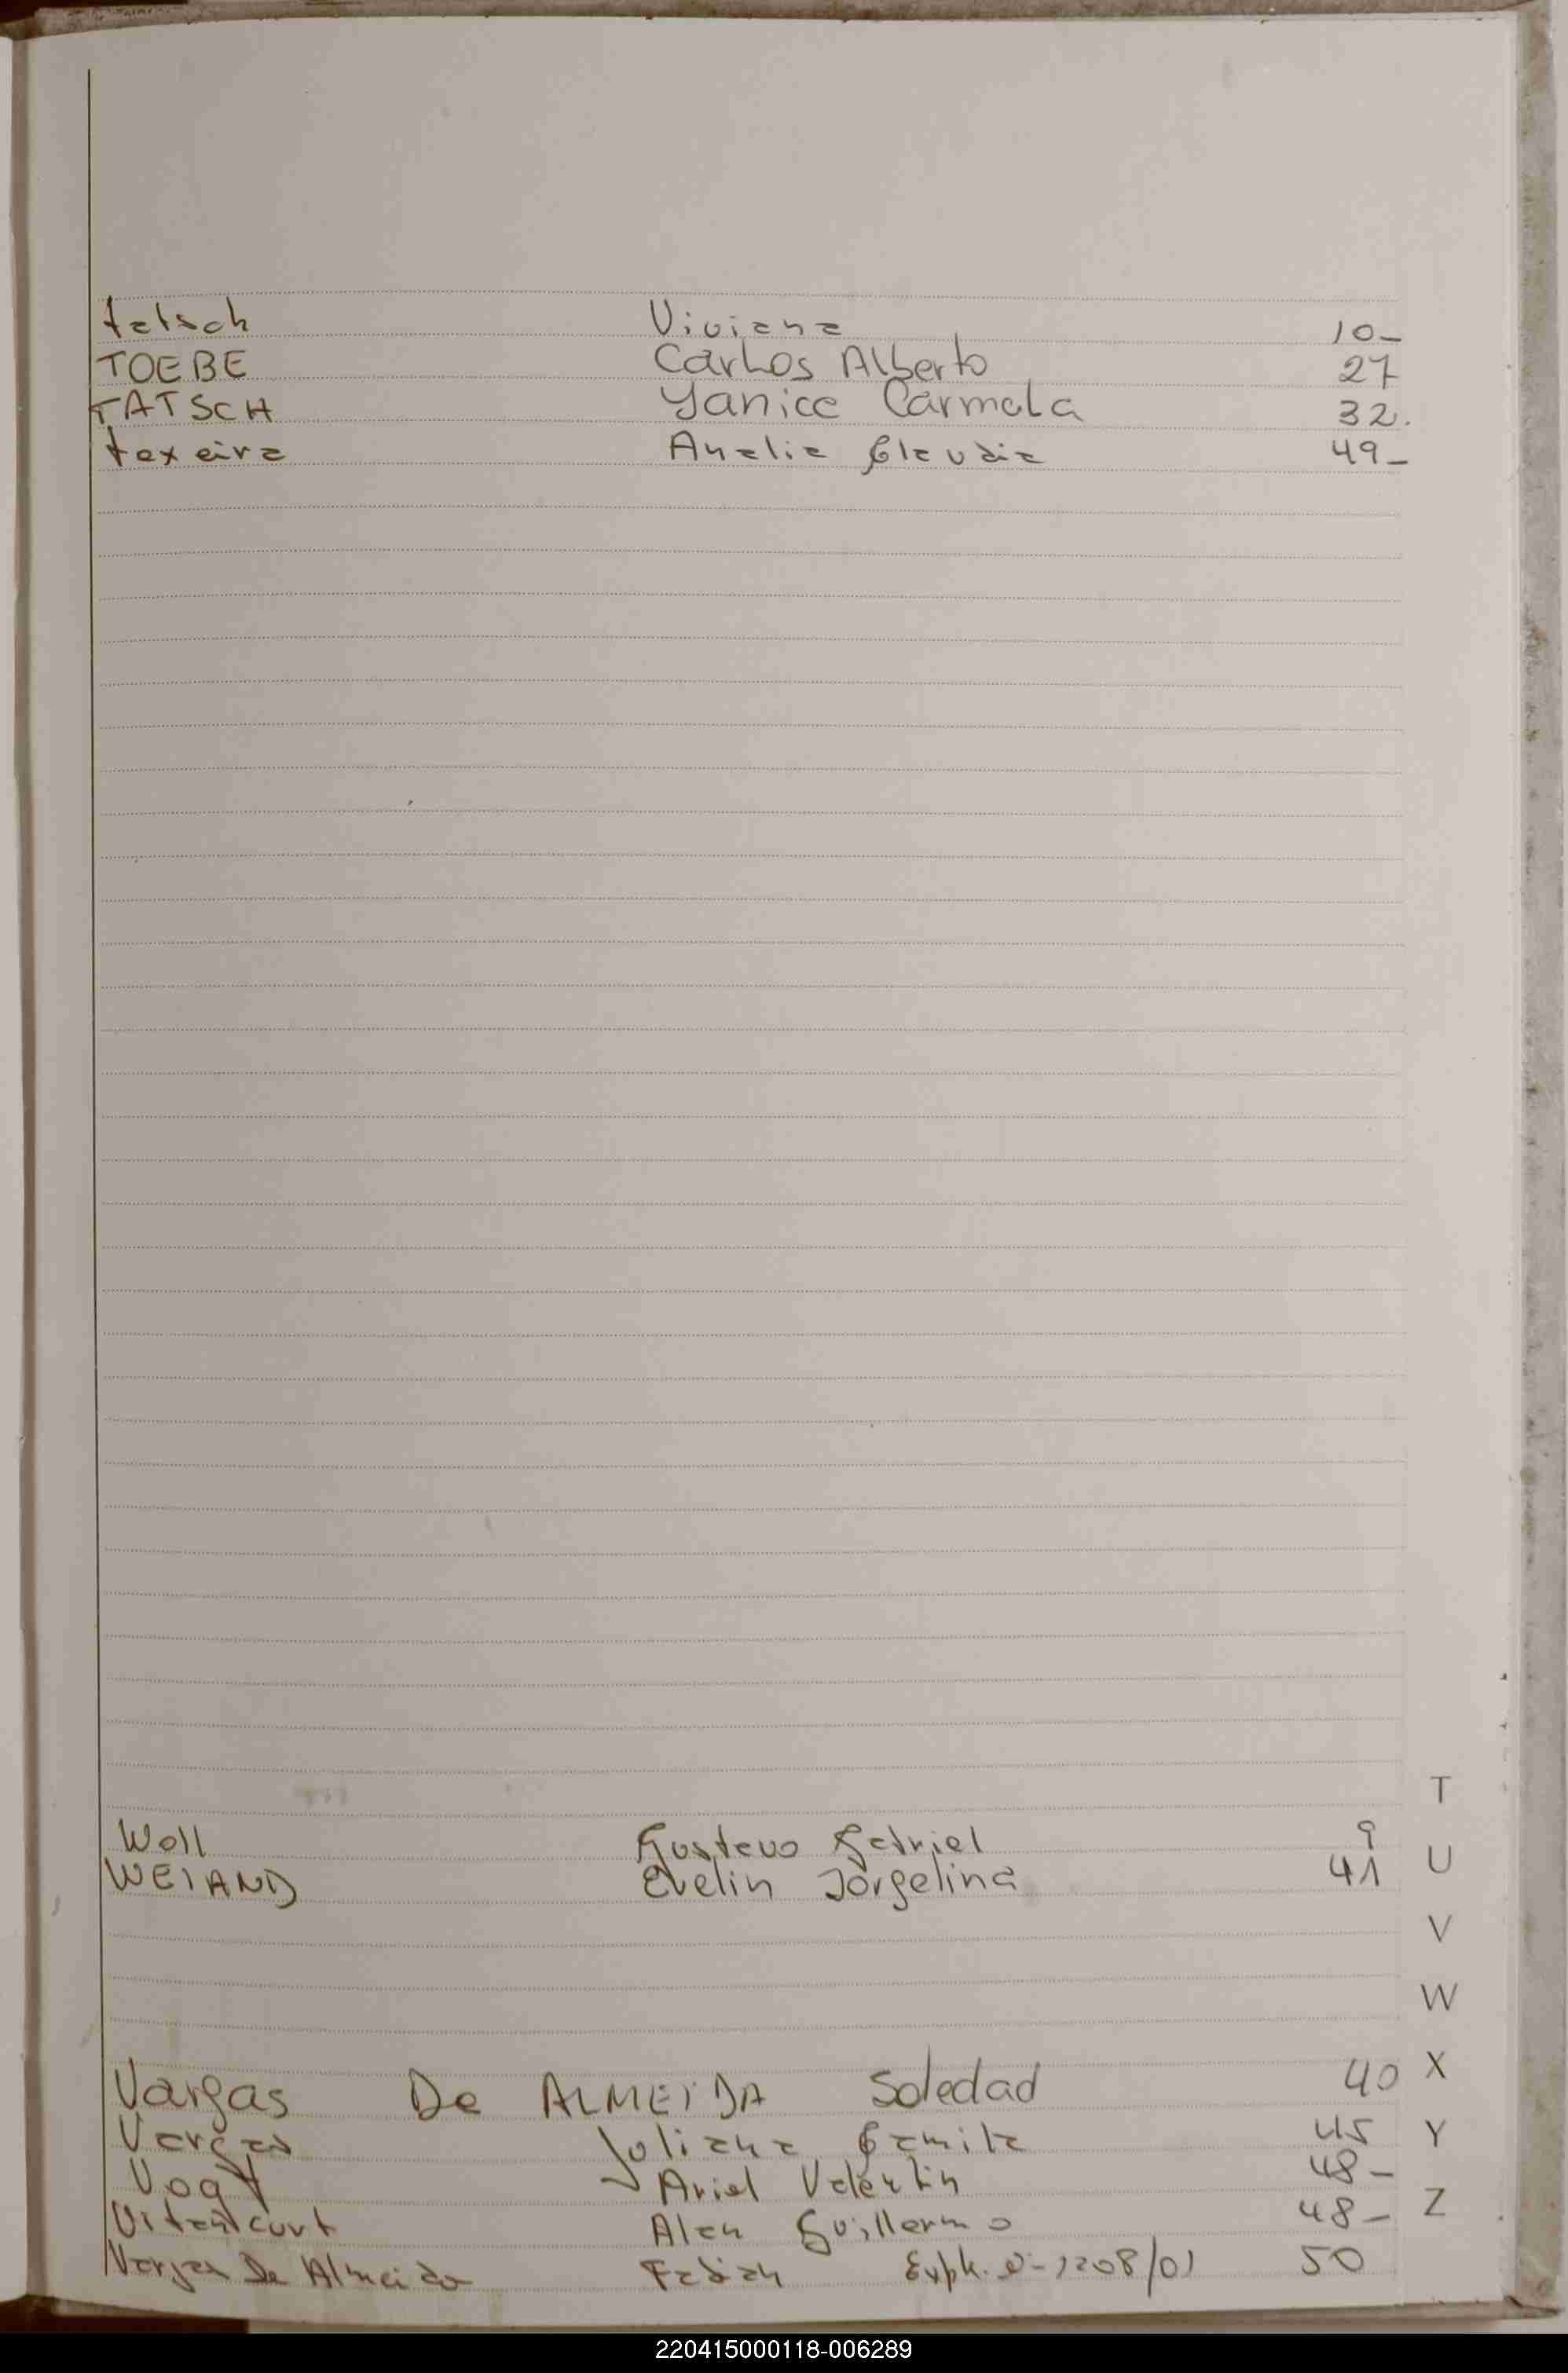 tatsch Viviana 10-
TOEBE Carlos Alberto 27
TATSCH Yanice Carmela 32.
texeira Analia Claudia 49-
T
Woll Gustavo Gabriel 9
U
WEIAND Evelin Jorgelina 41
V
W
X
Vargas De ALMEiDA Soledad 40
Y
Vargas Juliana Camila 45
Vogt Ariel Valentin 48-
Z
Vitencurt Alan Guillermo 48-
Vargas De Almeida Fabian 1208/01 50
220415000118-006289